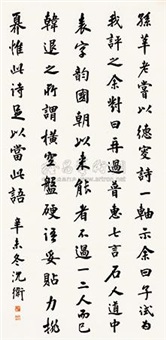 孫莘老嘗以德叟詩一軸示余曰子試為
我評之余對曰再過普惠七言石人道中
字韵國朝以來能者不過一二人而已
韓退之所謂橫空盤硬語妥貼力排
奡惟此詩足以當此語 辛未冬沈衛